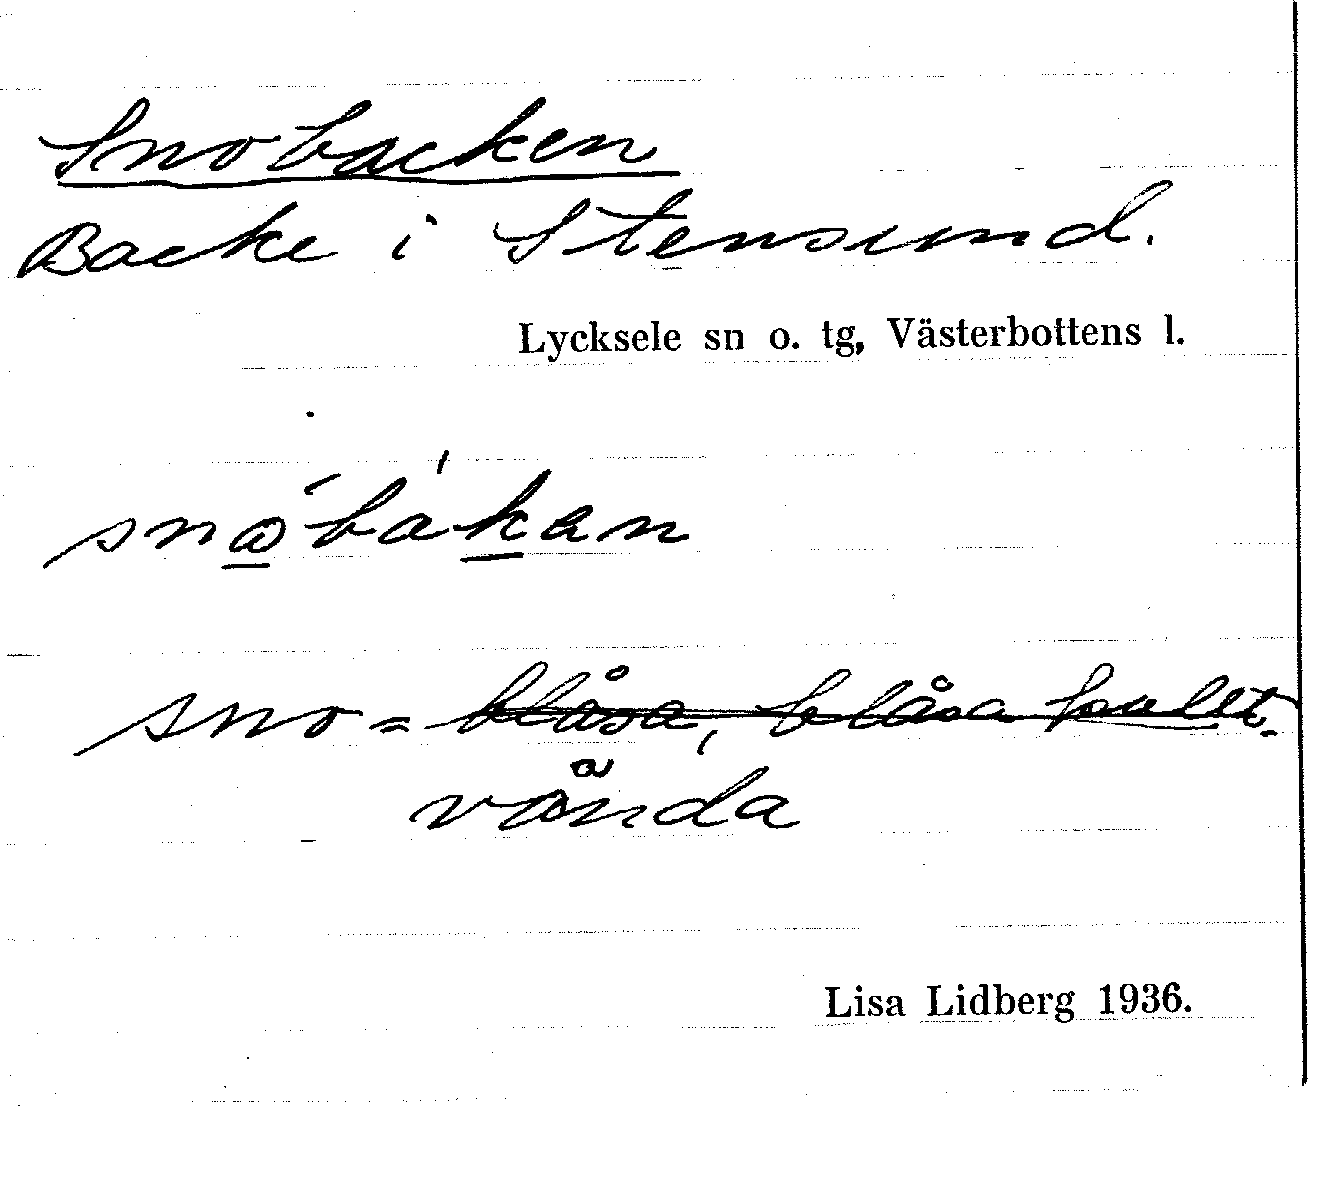 Snobacken
Backe i Stensund.
Lycksele sn o. tg, Västerbottens l.
sno = blåsa, blåsa kallt.
vånda
Lisa Lidberg 1936.